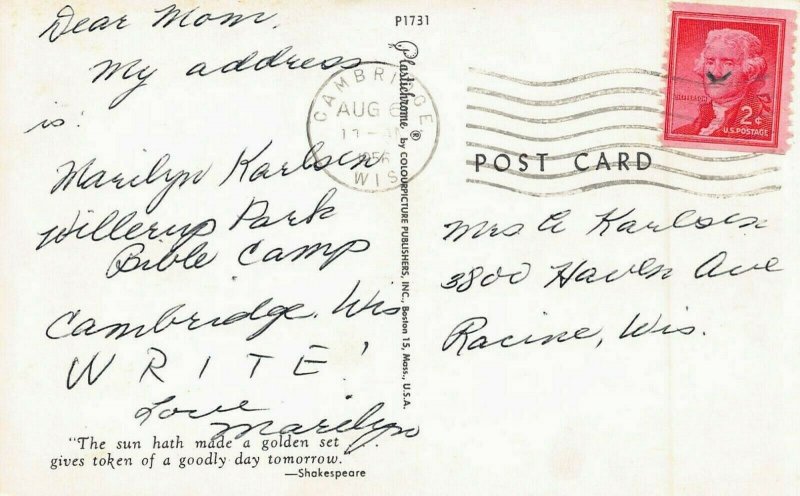 Dear Mom,
My address
is:
Marilyn Karlsen
Willerup Park
Bible Camp
Cambridge, Wis
WRITE!
Love
Marilyn
"The sun hath made a golden set
gives token of a goodly day tomorrow."
—Shakespeare
P1731
Plastichrome ® by COLOURPICTURE PUBLISHERS, INC., Boston 15, Mass., U.S.A.
CAMBRIDGE
AUG 6
1956
WIS
JEFFERSON
2¢
U.S. POSTAGE
POST CARD
Mrs A Karlsen
3800 Haven Ave
Racine, Wis.